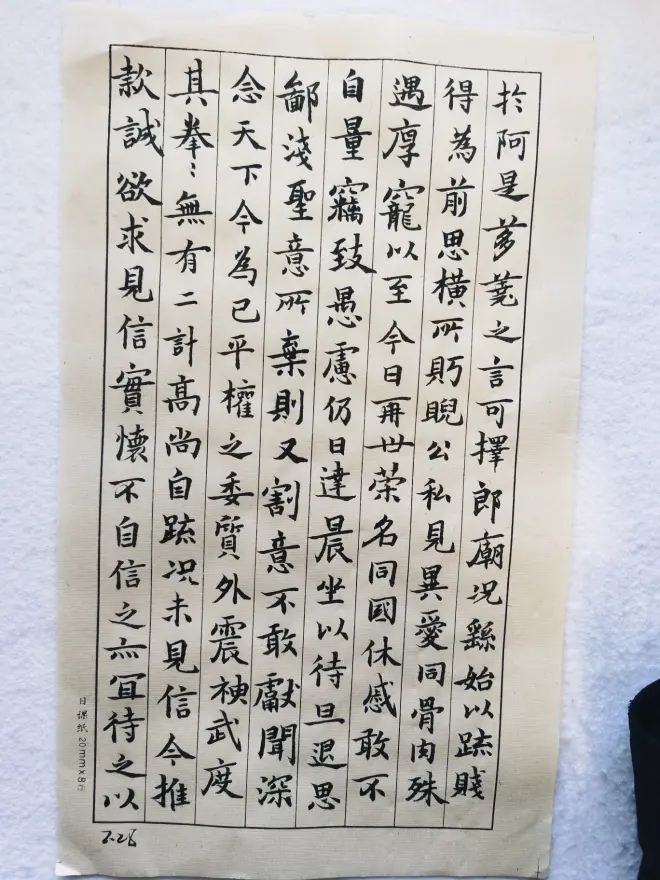 於阿是芻蕘之言可擇郎廟况繇始以踈賤
得為前思橫所眄睨公私見異愛同骨肉殊
遇厚寵以至今日再世荣名同國休慼敢不
自量竊致愚慮仍日達晨坐以待旦退思
鄙淺聖意所棄則又割意不敢獻聞深
念天下今為已平權之委質外震神武度
其拳〻無有二計高尚自踈况未見信今推
款誠欲求見信實懷不自信之亦冝待之以
日课纸 20mm×8行
7.28